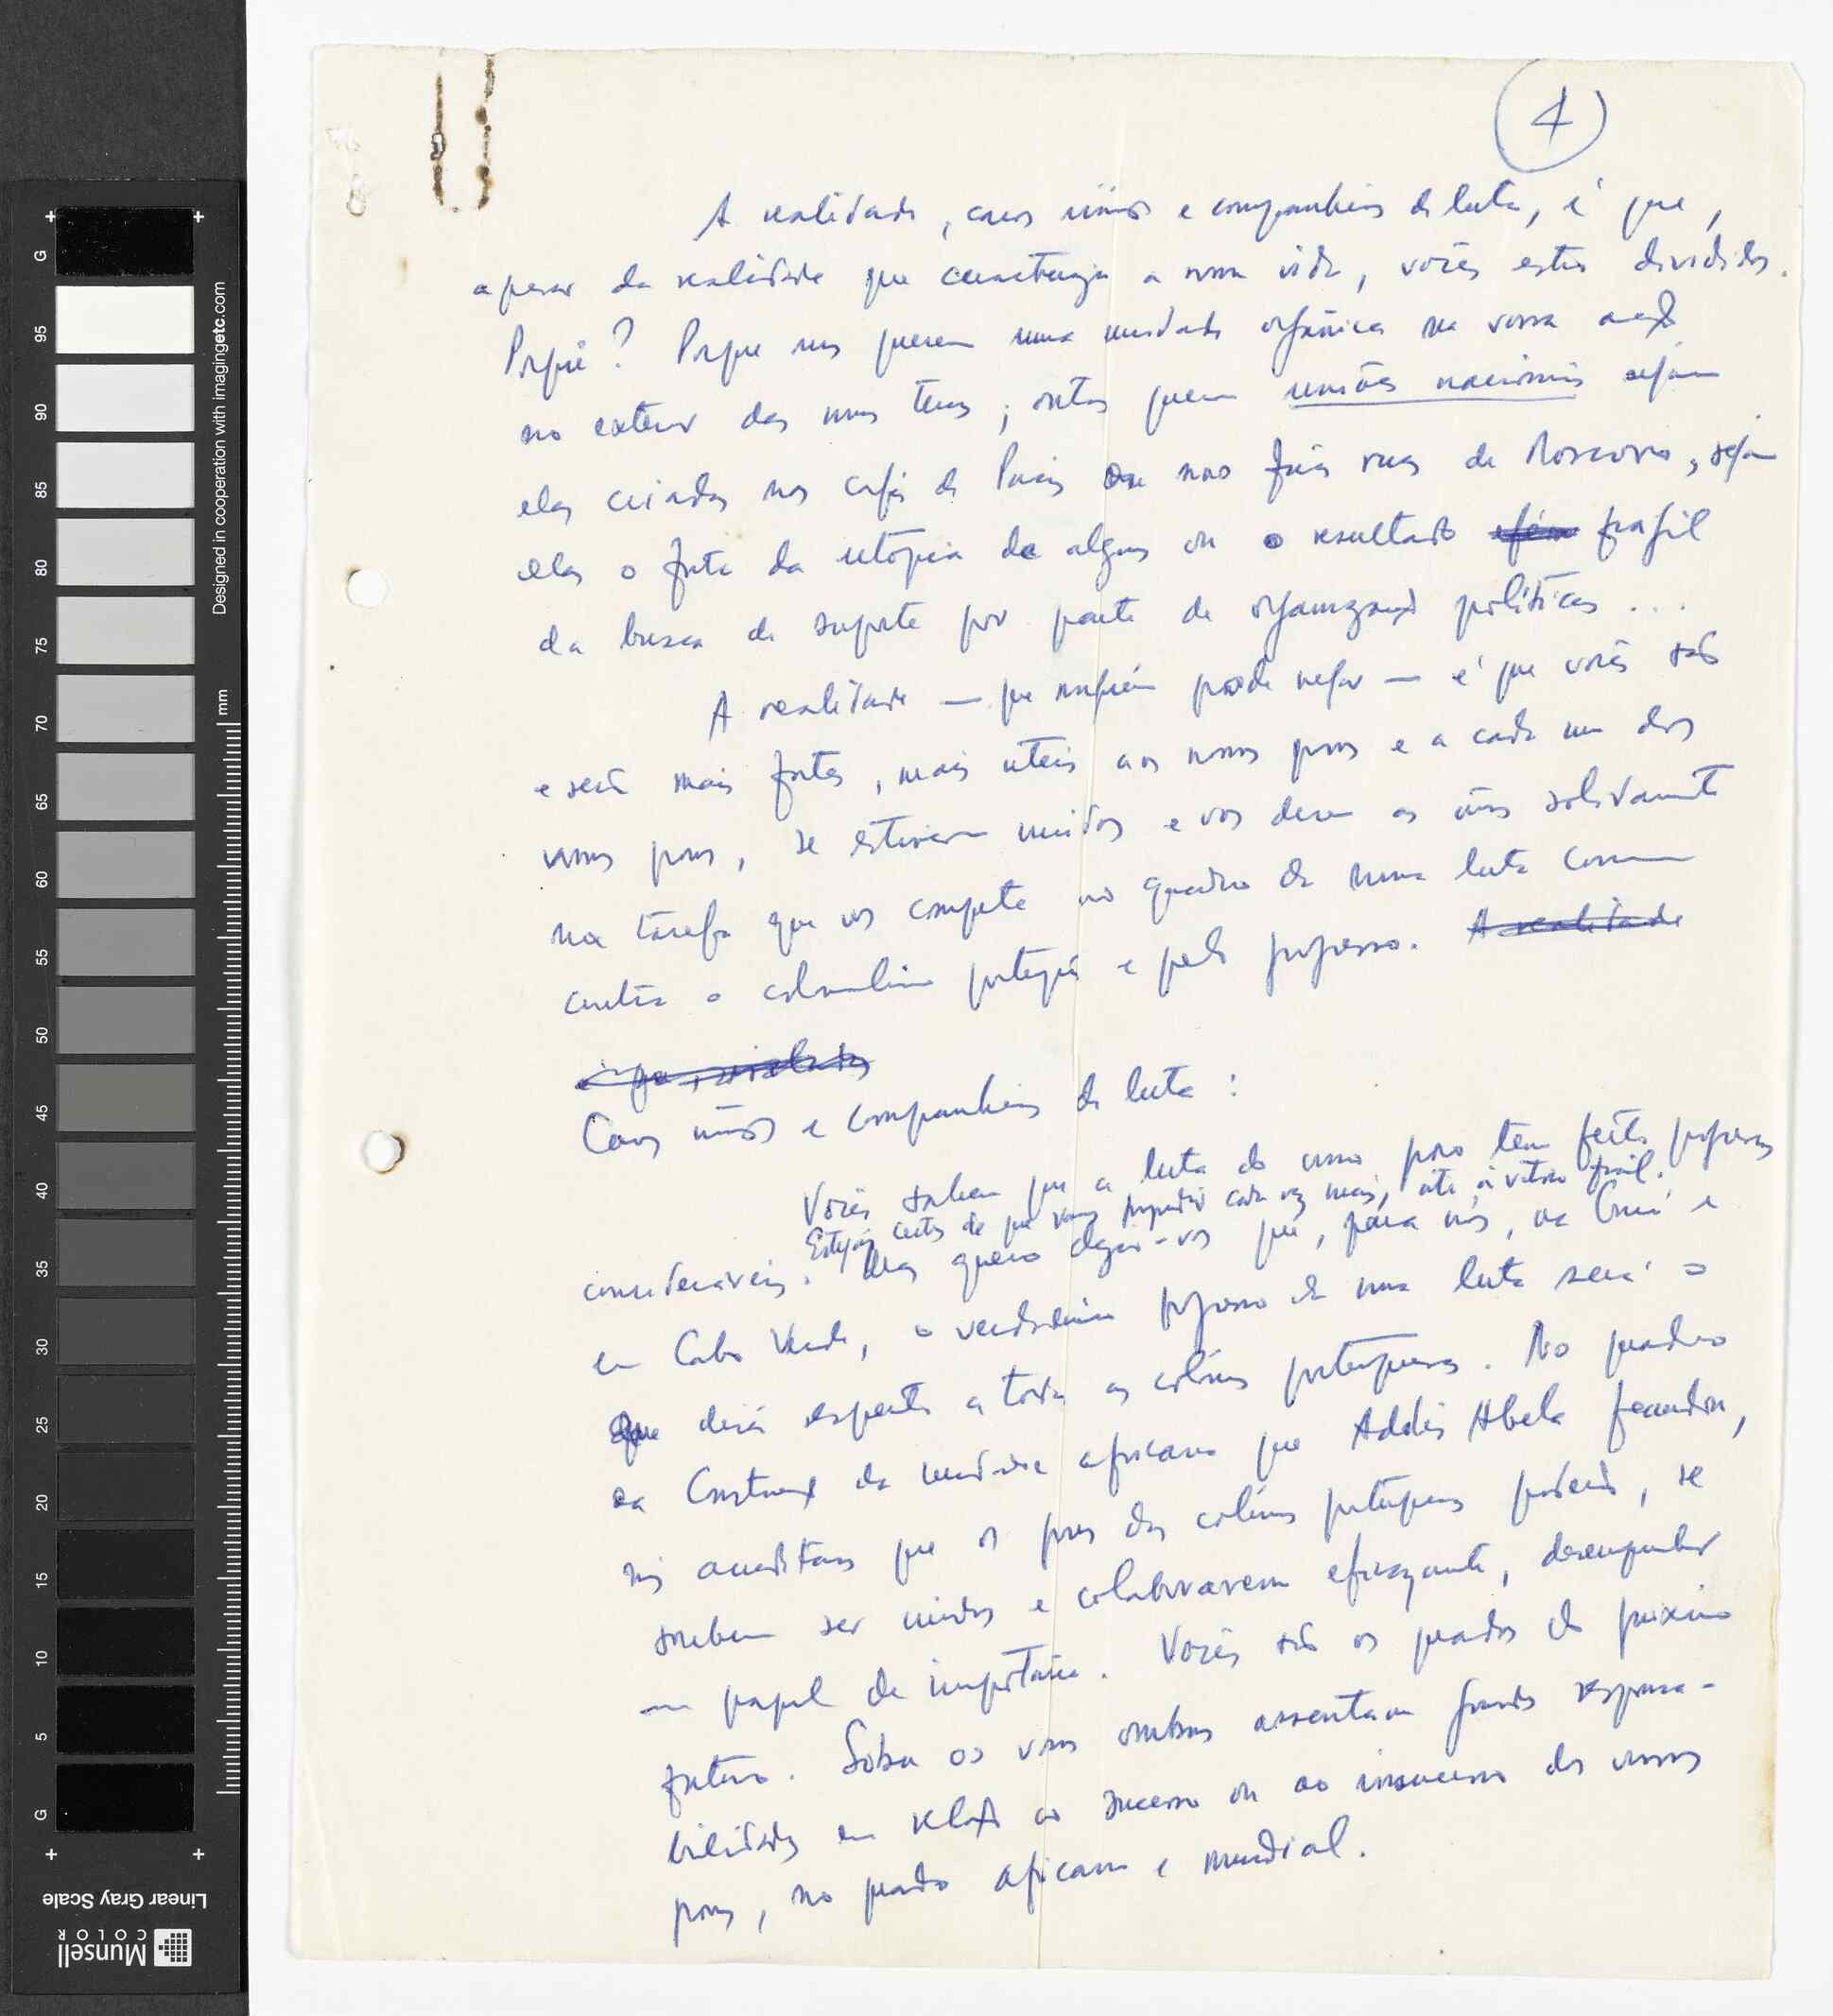 4
A realidade, caros irmãos e companheiros de luta, é que,
apesar da realidade que constrange a nossa vida, vocês estão divididos.
Porquê? Porque uns querem uma unidade orgânica na vossa acção
no exterior das nossas terras; outros querem uniões nacionais sejam
elas criadas nos cafés de Paris ou nas frias ruas de Moscovo, sejam
elas o fruto da utopia de alguns ou o resultado frágil
da busca de suporte por parte de organizações políticas ...
A realidade — que ninguém pode negar — é que vocês são
e serão mais fortes, mais úteis aos nossos povos e a cada um dos
nossos povos, se estiverem unidos e vos derem as mãos solidariamente
na tarefa que vos compete no quadro da nossa luta comum
contra o colonialismo português e pelo progresso. A realidade
é que,
Caros irmãos e companheiros de luta:
Vocês sabem que a luta do nosso povo tem feito progressos
Estejam certos de que vamos progredir cada vez mais, até à vitória final.
consideráveis. Mas quero dizer-vos que, para nós, na Guiné e
em Cabo Verde, o verdadeiro progresso da nossa luta será o
que disser respeito a todas as colónias portuguesas. No quadro
da Construção da unidade africana que Addis Abeba fecundou,
nós acreditamos que os povos das colónias portuguesas poderão, se
souberem ser unidos e colaborarem eficazmente, desempenhar
um papel de importância. Vocês são os quadros do próximo
futuro. Sobre os vossos ombros assentam grandes responsa-
bilidades em relação ao sucesso ou ao insucesso dos nossos
povos, no quadro africano e mundial.
G 95 90 85 80 75 70 65 60 55 50 45 40 35 30 25 20 15 10 5 G
mm
Designed in cooperation with imagingetc.com
Linear Gray Scale
Munsell
COLOR